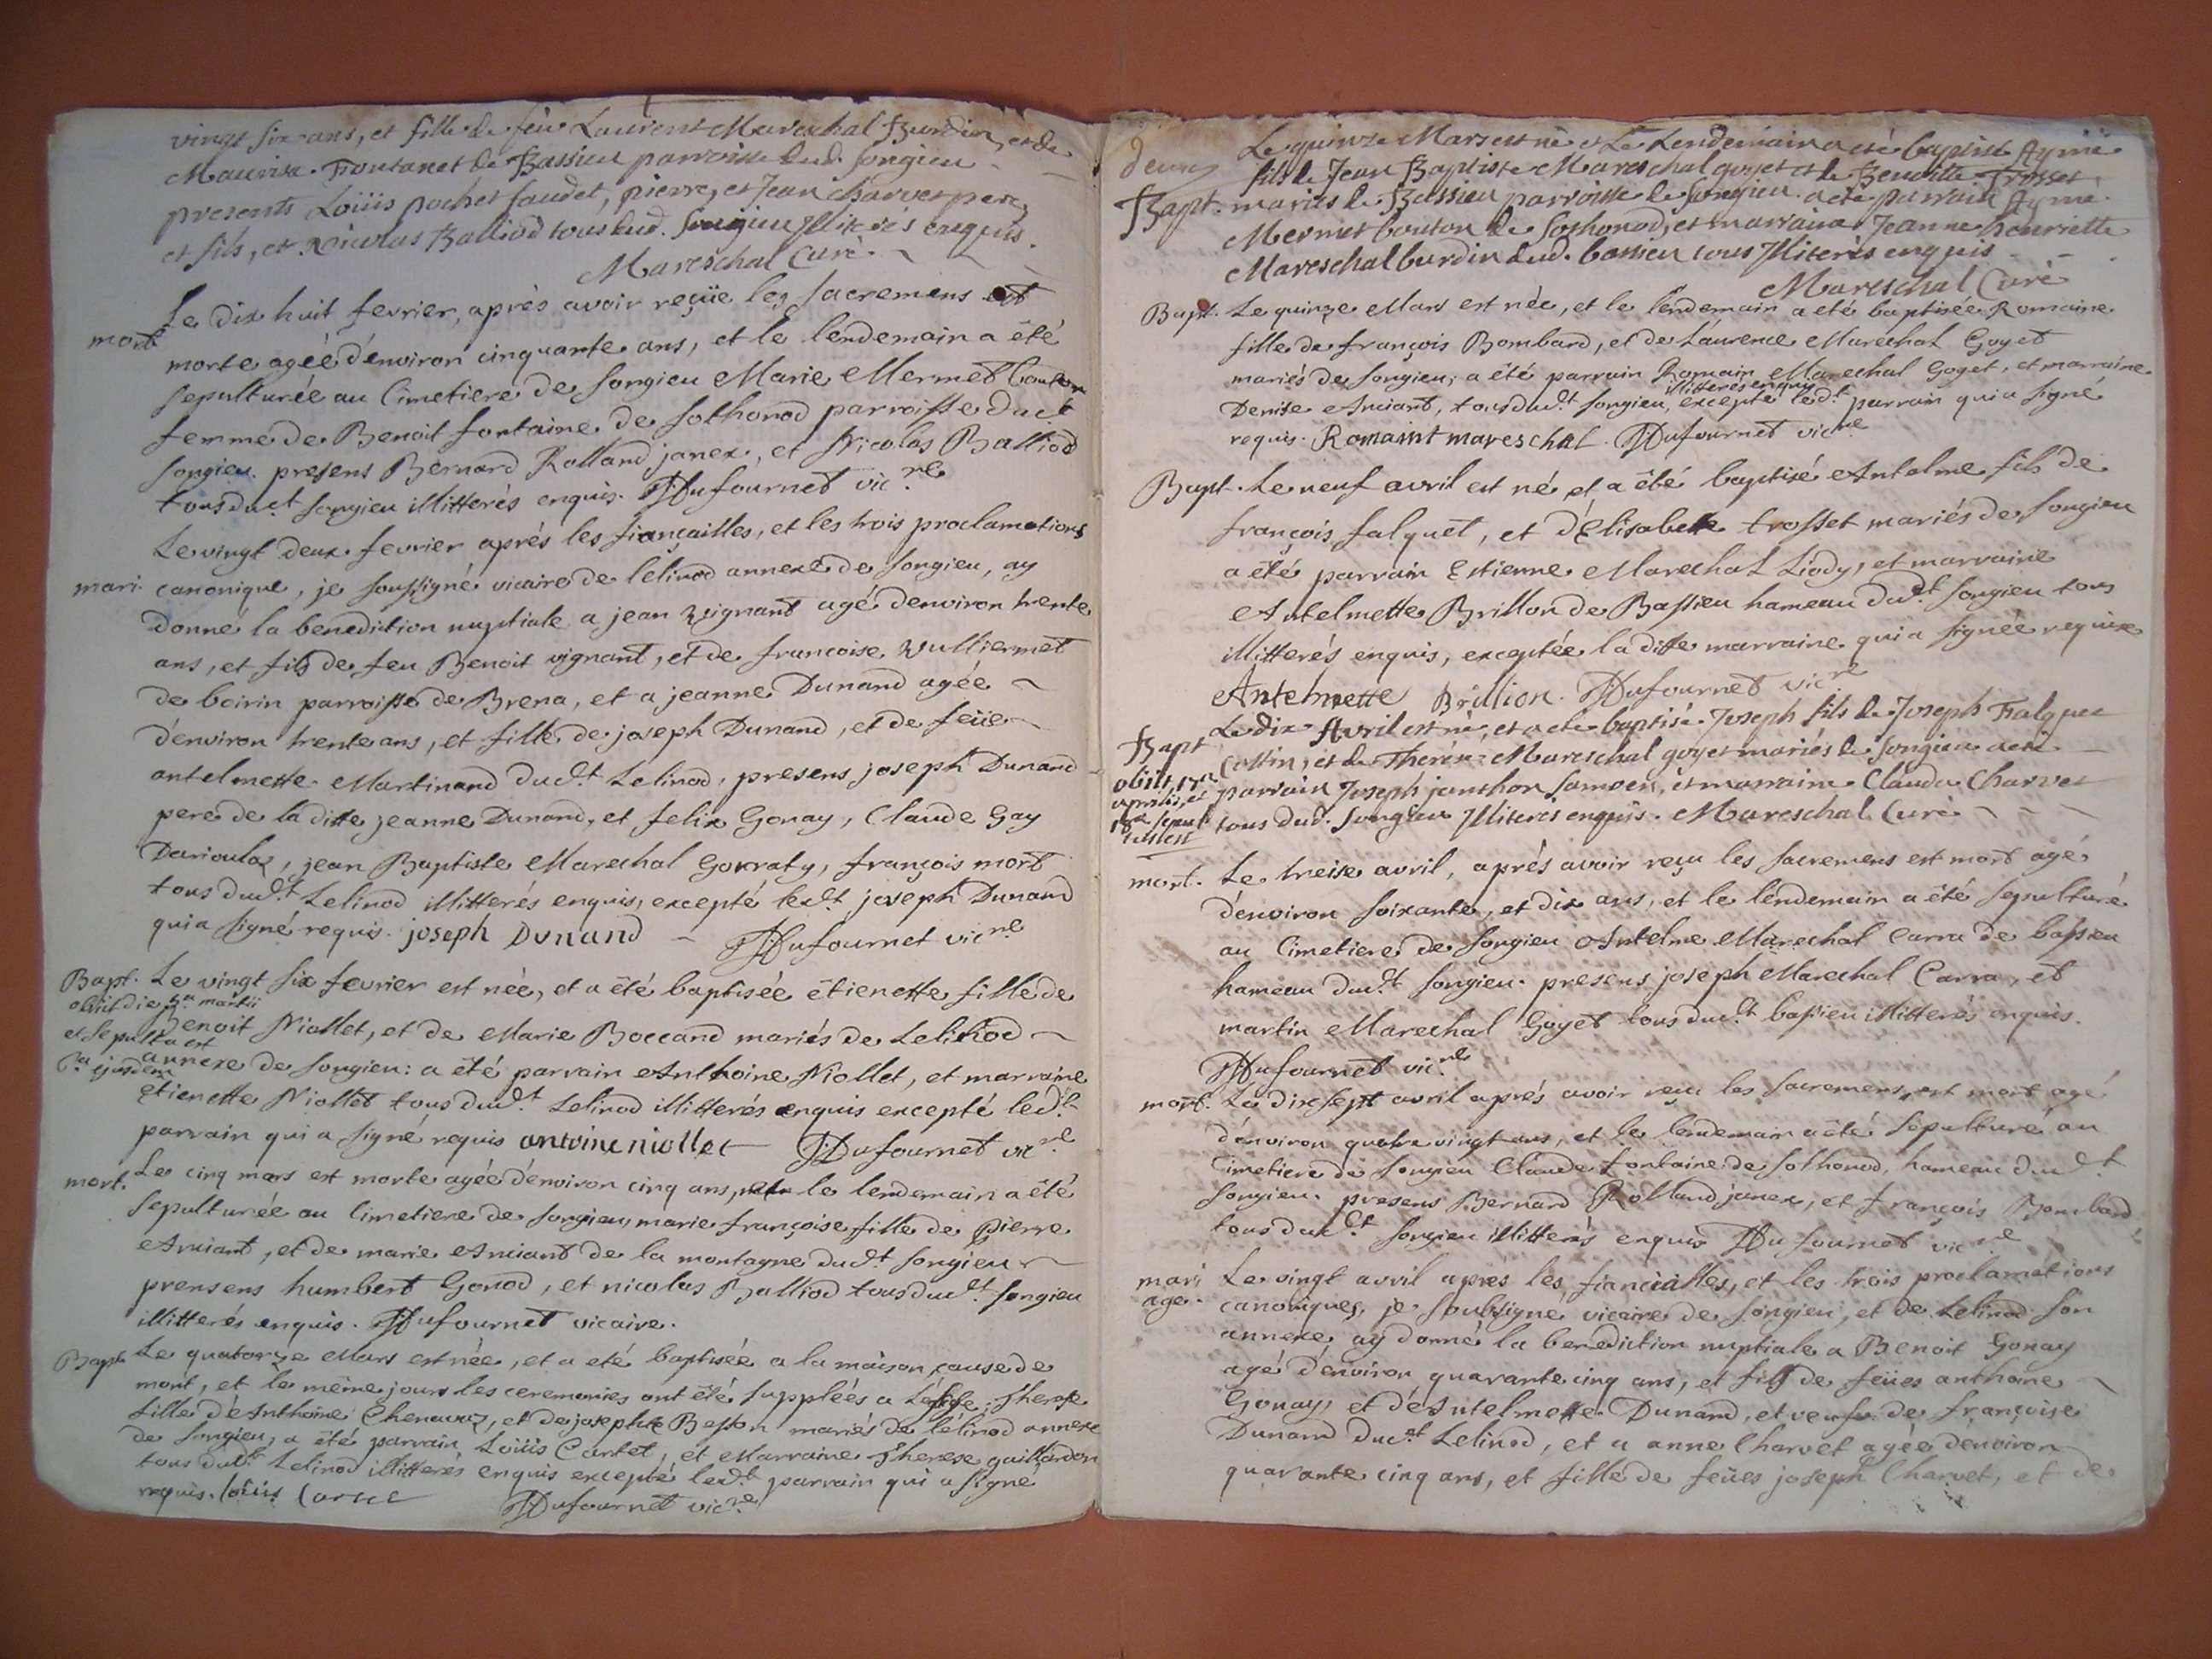 vingt six ans, et fille de feu Laurent Mareschal Burdin, et de
Maurise Fontanet de Bassieu parroisse dud. Songieu
presents Loüis pochet faudet, pierre, et Jean charvet pere,
et fils, et Nicolas Balliod tous dud. Songieu Illiterés enquis.
Mareschal Curé
mort
Le dix huit fevrier, aprés avoir reçüe les sacremens est
morte agée d'environ cinquante ans, et le lendemain a été
sepulturée au Cimetiere de Songieu Marie Mermet bouton
femme de Benoit fontaine de Sothonod parroisse dudt
Songieu. presens Bernard Rolland janex, et Nicolas Balliod
tous dudt Songieu illitterés enquis. Dufournet vicre
mari.
Le vingt deux fevrier aprés les fiançailles, et les trois proclamations
canonique, je soussigné vicaire de lelinod annexe de Songieu, ay
donné la benediction nuptiale a jean vignant agé d'environ trente
ans, et fils de feu Benoit vignant, et de francoise Vulliermet
de boirin parroisse de Brena, et a jeanne Dunand agée
d'environ trente ans, et fille de joseph Dunand, et de feüe
antelmette Martinand dudt Lelinod, presens joseph Dunand
pere de la ditte jeanne Dunand, et felix Gonay, Claude Gay
Darioulaz, jean Baptiste Marechal Gorraty, françois mort
tous dudt Lelinod illitterés enquis, excepté ledt joseph Dunand
qui a signé requis. joseph Dunand Dufournet vicre
Bapt. Le vingt six fevrier est née, et a été baptisée êtienette fille de
obiit die 4a martii
Benoit Niollet, et de Marie Boccand mariés de Lelinod
et sepulta est
annexe de Songieu: a été parrain Anthoine Niollet, et marraine
5a ejusdem
Etienette Niollet tous dudt Lelinod illitterés enquis excepté ledt
parrain qui a signé requis antoine niollet Dufournet vicre
mort. Le cinq mars est morte agée d'environ cinq ans, et le lendemain a été
sepulturée au Cimetiere de Songieu, marie françoise fille de pierre
Anciant, et de marie Anciant de la montagne dudt Songieu
prensens humbert Gonod, et nicolas Balliod tous dudt Songieu
illitterés enquis. Dufournet vicaire.
Bapt Le quatorze Mars est née, et a eté baptisée a la maison cause de
mort, et le même jours les ceremonies ont été suppléés a Léglise, Therese
fille d'Anthoine Chenavaz, et de josephte Besson mariés de lélinod annexe
de Songieu, a été parrain Loüis Cartet, et Marraine Therese gaillardon
tous dudt Lelinod illitterés enquis excepté ledt parrain qui a signé
requis. loüis Dufournet vicre
deux
Le quinze Mars est né et Le Lendemain a eté baptisé Aymé
fils de Jean Baptiste Mareschal goyet et de Benoitte Trosset
Bapt. mariés de Bassieu parroisse de Songieu. a eté parrain Aymé
Mermet bouton de Sothonod, et marraine Jeanne henriette
Mareschal burdin dud. bassieu tous Illiterés enquis
Mareschal Curé
Bapt. Le quinze Mars est née, et le lendemain a eté baptisée Romaine
fille de françois Bombard, et de Laurence Marechal Goyet
mariés de Songieu; a été parrain Romain Marechal Goyet, et marraine
illitterés enquis
Denise Anciant, tous dudt Songieu, excepté ledt parrain qui a signé
requis. Romaint mareschal. Dufournet vicre
Bapt. Le neuf avril est né et a été baptisé Antelme fils de
françois falquet, et d'Elisabette trosset mariés de Songieu
a été parrain Estienne Marechal Liody, et marraine
Antelmette Brillon de Bassieu hameau dudt Songieu tous
illitterés enquis, exceptée la ditte marraine qui a signée requise
Antelmette Brillion. Dufournet vicre
Bapt
Le dix Avril est né, et a eté baptisé Joseph fils de Joseph Falquet
Cottin, et de Therése Mareschal goyet mariés de Songieu a eté
obiit 17a
parrain Joseph janthon Samoen, et marraine Claudа Charvet
aprilis, et
18a sepult
tous dud. Songieu Illiterés enquis. Mareschal Curé
mort. Le treise avril, aprés avoir reçu les sacremens est mort agé
d'environ soixante, et dix ans, et le lendemain a été sepulturé
au Cimetiere de Songieu Antelme Marechal Carra de bassieu
hameau dudt Songieu. presens joseph Marechal Carra, et
martin Marechal Goyet tous dudt bassieu illitterés enquis.
Dufournet vicre
mort. Le dix sept avril aprés avoir reçu les sacremens, est mort agé
d'environ quatre vingt ans, et le lendemain a été sepulturé au
Cimetiere de Songieu Claude fontaine de Sothonod, hameau dudt
Songieu. presens Bernard Rolland janex, et françois Bombard
tous dudt Songieu illitterés enquis Dufournet vicre
mari
age.
Le vingt avril aprés les fiançailles, et les trois proclamations
canoniques, je soubsigné vicaire de Songieu, et de Lelinod son
annexe ay donné la benediction nuptiale a Benoit Gonay
agé d'environ quarante cinq ans, et fils de feües anthoine
Gonay, et d'Antelmette Dunand, et veufs de françoise
Dunand dudt Lelinod, et a anne Charvet agée d'environ
quarante cinq ans, et fille de feües joseph Charvet, et de